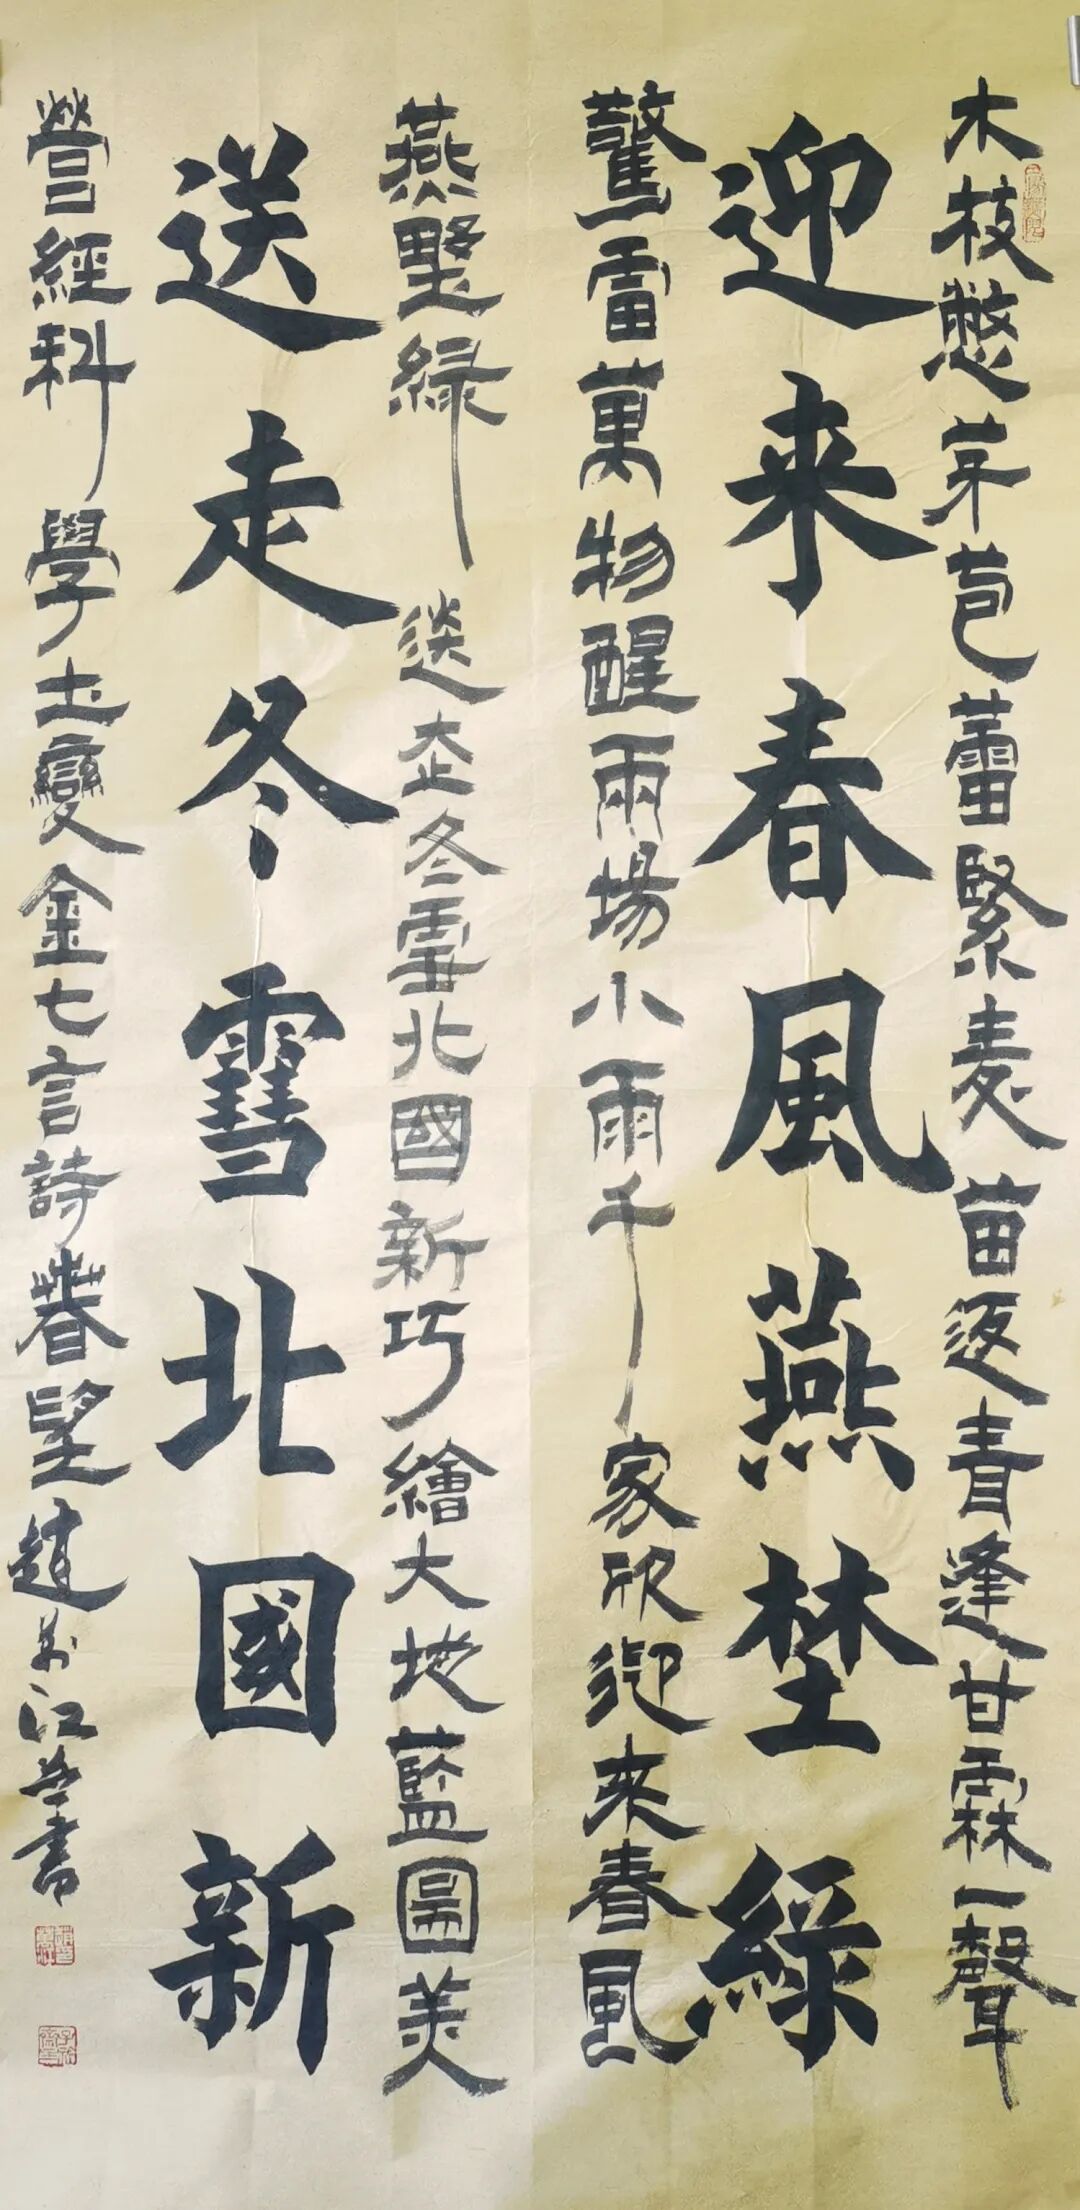 木枝憋芽苞蕾緊麦苗返青逢甘霖一聲
迎来春風燕埜綠
驚雷萬物醒兩場小雨千家欣迎来春風
燕墅緑送走冬雪北國新巧繪大地藍圖美
送走冬雪北國新
營經科學土變金七言詩春望趙万江并書